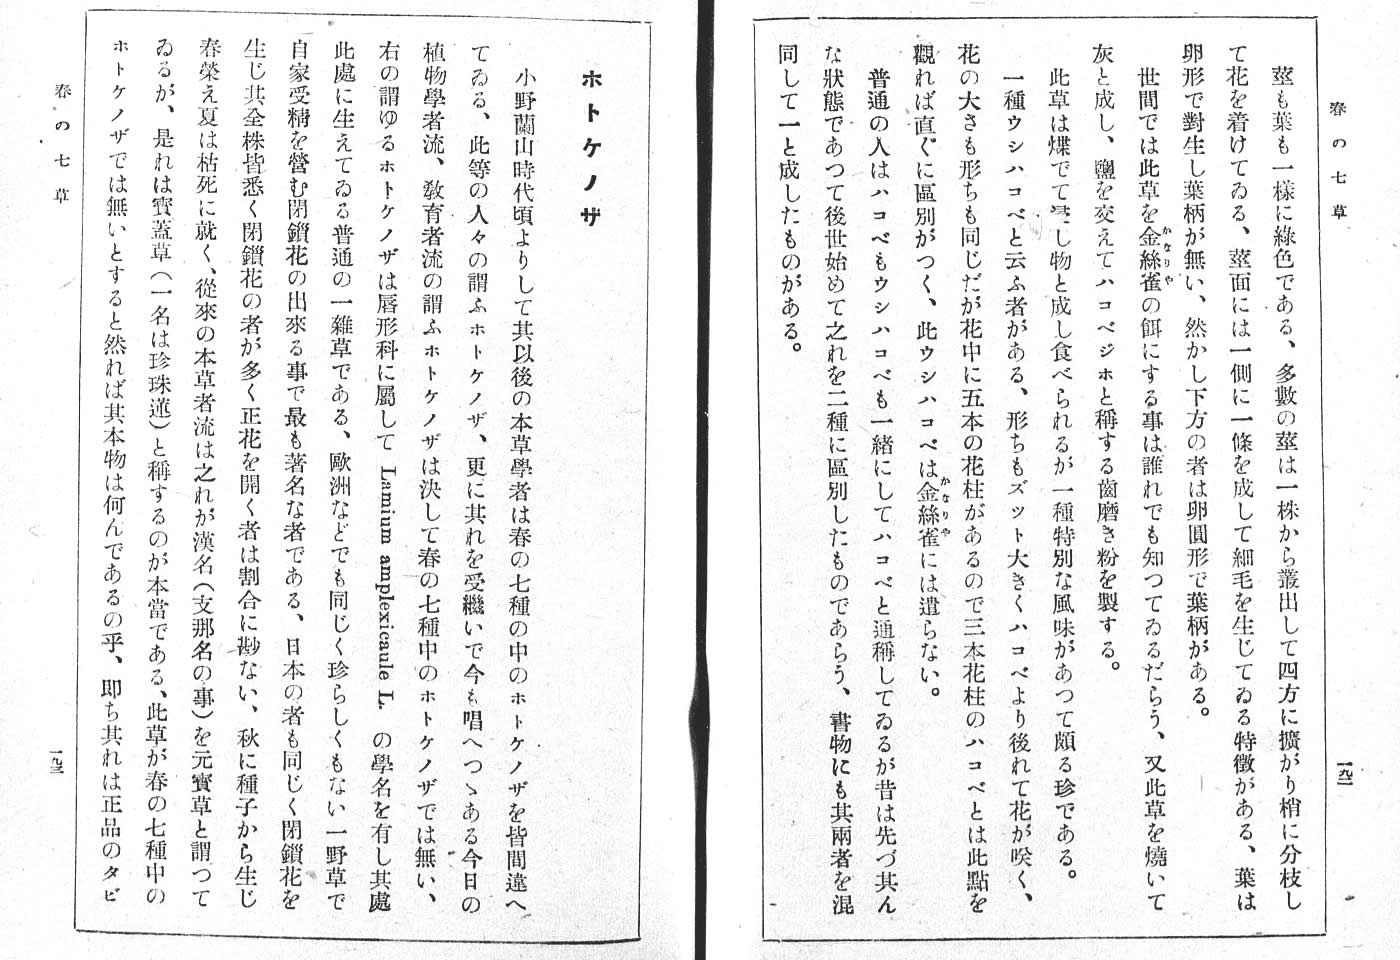 春の七草
莖も葉も一樣に綠色である、多數の莖は一株から叢出して四方に擴がり梢に分枝し
て花を着けてゐる、莖面には一側に一條を成して細毛を生じてゐる特徴がある、葉は
卵形で對生し葉柄が無い、然かし下方の者は卵圓形で葉柄がある。
世間では此草を金絲雀の餌にする事は誰れでも知つてゐるだらう、又此草を燒いて
灰と成し、鹽を交えてハコベジホと稱する齒磨き粉を製する。
此草は煠でて し物と成し食べられるが一種特別な風味があつて頗る珍である。
一種ウシハコベと云ふ者がある、形ちもズット大きくハコベより後れて花が咲く、
花の大さも形ちも同じだが花中に五本の花柱があるので三本花柱のハコベとは此點を
觀れば直ぐに區別がつく、此ウシハコベは金絲雀には遣らない。
普通の人はハコベもウシハコベも一緒にしてハコベと通稱してゐるが昔は先づ其ん
な狀態であつて後世始めて之れを二種に區別したものであらう、書物にも其兩者を混
同して一と成したものがある。
一九二
ホトケノザ
小野蘭山時代頃よりして其以後の本草學者は春の七種の中のホトケノザを皆間違へ
てゐる、此等の人々の謂ふホトケノザ、更に其れを受繼いで今も唱へつゝある今日の
植物學者流、敎育者流の謂ふホトケノザは決して春の七種中のホトケノザでは無い、
右の謂ゆるホトケノザは唇形科に屬して Lamium amplexicaule L. の學名を有し其處
此處に生えてゐる普通の一雜草である、歐洲などでも同じく珍らしくもない一野草で
自家受精を營む閉鎖花の出來る事で最も著名な者である、日本の者も同じく閉鎖花を
生じ其全株皆悉く閉鎖花の者が多く正花を開く者は割合に尠ない、秋に種子から生じ
春榮え夏は枯死に就く、從來の本草者流は之れが漢名（支那名の事）を元寳草と謂つて
ゐるが、是れは寳蓋草（一名は珍珠蓮）と稱するのが本當である、此草が春の七種中の
ホトケノザでは無いとすると然れば其本物は何んであるの乎、即ち其れは正品のタビ
春の七草
一九三